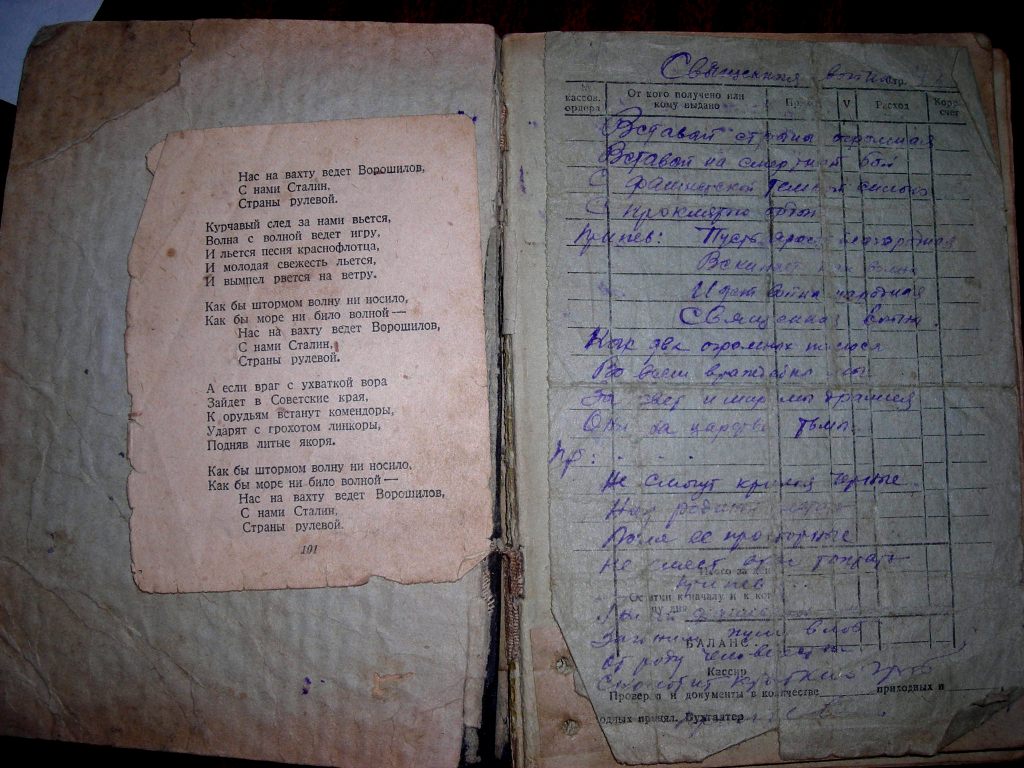 Нас на вахту ведет Ворошилов,
С нами Сталин,
Страны рулевой.
Курчавый след за нами вьется,
Волна с волной ведет игру,
И льется песня краснофлотца,
И молодая свежесть льется,
И вымпел рвется на ветру.
Как бы штормом волну ни носило,
Как бы море ни било волной —
Нас на вахту ведет Ворошилов,
С нами Сталин,
Страны рулевой.
А если враг с ухваткой вора
Зайдет в Советские края,
К орудьям встанут комендоры,
Ударят с грохотом линкоры,
Подняв литые якоря.
Как бы штормом волну ни носило,
Как бы море ни било волной —
Нас на вахту ведет Ворошилов,
С нами Сталин,
Страны рулевой.
101
Священная война стр.
№ кассов. ордера От кого получено или кому выдано V Расход Корр. счет
Вставай страна огромная
Вставай на смертный бой
С фашистской темной силою
С проклятою
Припев: Пусть ярость благородная
Вскипает как волна
Идет война народная
Священная война
Как два огромных полюса
Во всем враждебны
За свет и мир мы
Они за царство тьмы.
Пр: . . .
Не смогут крылья черные
Над родиной
Поля ее просторные
Не смеет враг топтать
Припев ...
Итого за
Остатки к началу и к
ну дня
Загоним пулю в лоб
БАЛАНС
Отродью человечества
Кассир
Сколотим крепкий гроб
Проверил и документы в количестве приходных и
одных принял. Бухгалтер